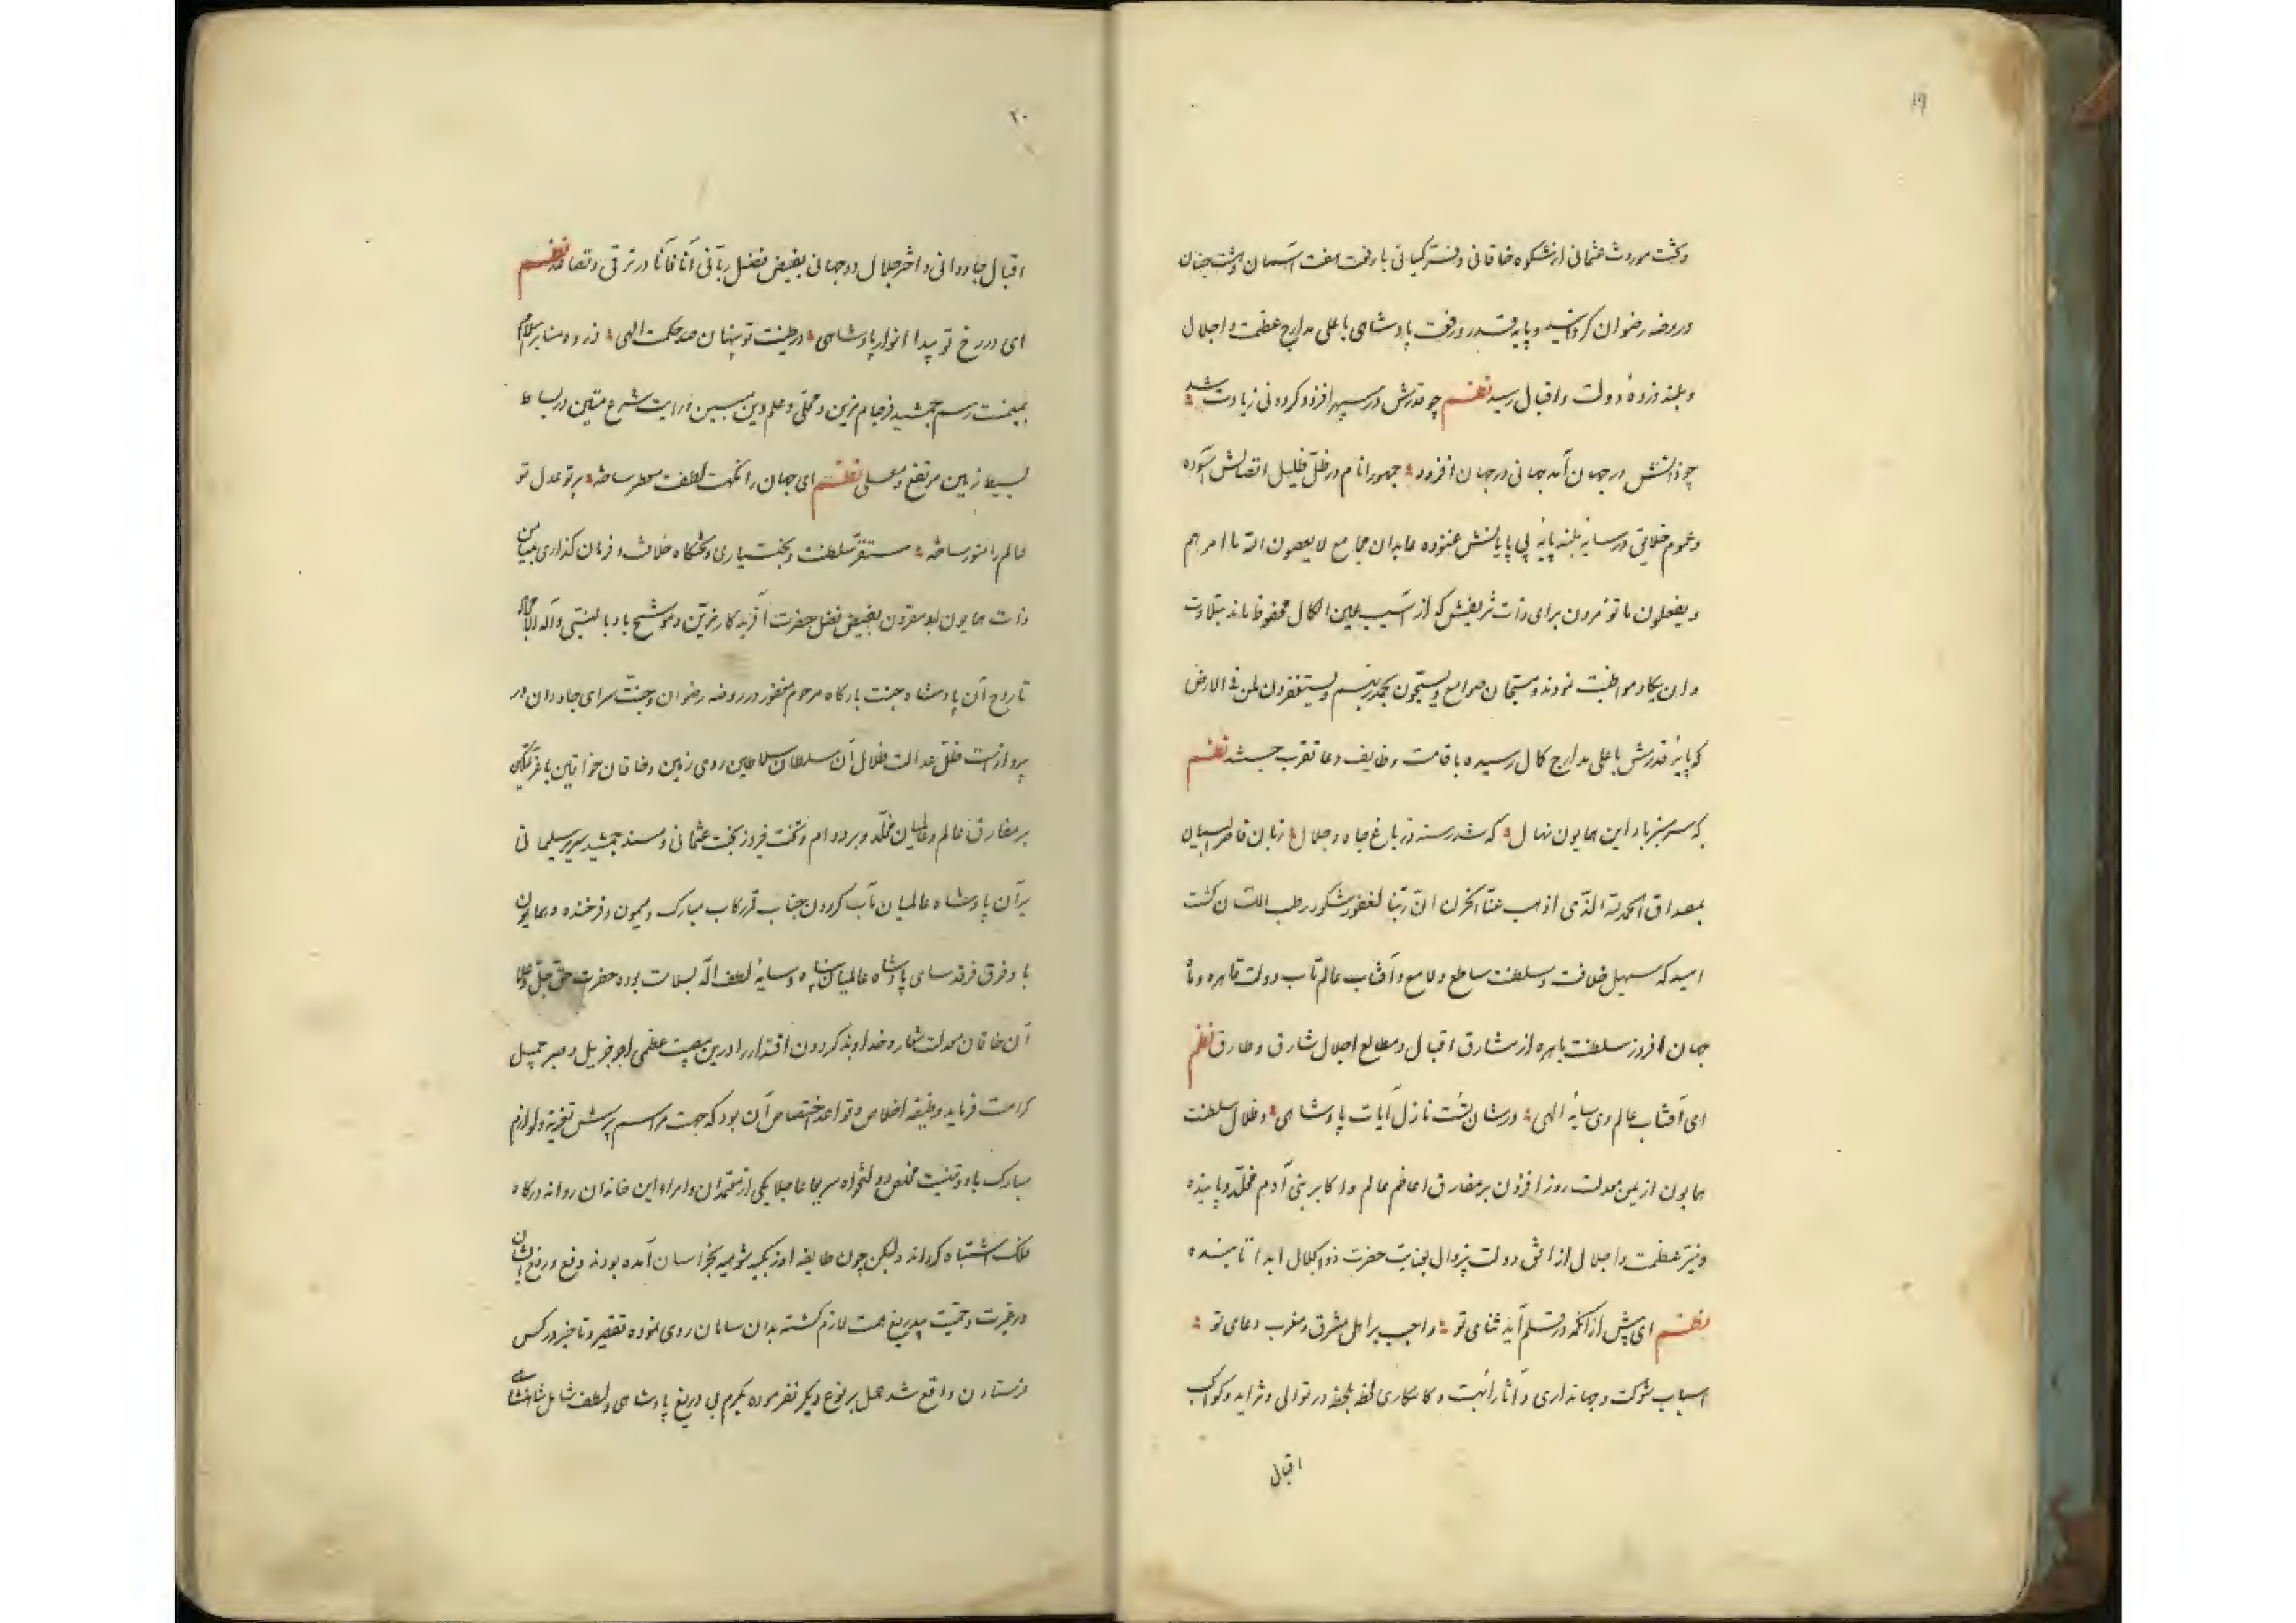 ۱۹
وتخت موروث عثمانی از شکوه خاقانی وفر کیانی با رفعت هفت آسمان وهشت جنان
وروضه رضوان کردانید وپایه قدر ورفعت پادشاهی باعلی مدارج عظمت واجلال
وبلند ذروهٔ دولت واقبال رسید نظم چو قدرش در سپهر افزود کردونی زیادت شد
چو ذاتش در جهان آمد جهانی در جهان افزود جمهور انام در ظل ظلیل اتصالش آسوده
وعموم خلایق در سایهٔ بلند پایهٔ بی پایانش غنوده عابدان مجامع لا یعصون الله ما امرهم
ویفعلون ما تؤمرون برای ذات شریفش که از آسیب عین الکمال محفوظ ماند بتلاوت
وان یکاد مواظبت نمودند ومسبحان صوامع ویسبحون بحمد ربهم ویستغفرون لمن فی الارض
که پایهٔ قدرش باعلی مدارج کمال رسیده باقامت وظایف دعا تقرب جسته نظم
که سرسبز باد این همایون نهال که شد رسته در باغ جاه وجلال زبان قاصر البیان
بمصداق الحمد لله الذی اذهب عنا الحزن ان ربنا لغفور شکور رطب اللسان کشت
امید که سهیل خلافت وسلطنت ساطع ولامع وآفتاب عالم تاب دولت قاهره
جهان افروز سلطنت باهره از مشارق اقبال ومطالع اجلال شارق وطارق نظم
ای آفتاب عالم وی سایهٔ الهی در شان تست نازل آیات پادشاهی وظلال سلطنت
همایون از یمن معدلت روز افزون بر مفارق اعاظم عالم واکابر بنی آدم مخلد وپاینده
ونیر عظمت واجلال از افق دولت بیزوال بعنایت حضرت ذو الجلال ابدا تابنده
نظم ای پیش از آنکه در قلم آید ثنای تو واجب بر اهل مشرق ومغرب دعای تو
اسباب شوکت وجهانداری وآثار ابهت وکامکاری لحظه بلحظه در توالی وتزاید وکوکب
اقبال
۲۰
اقبال جاودانی واختر جلال دوجهانی بفیض فضل ربانی آنا فآنا در ترقی وتصاعد نظم
ای در رخ تو پیدا انوار پادشاهی در طینت تو پنهان صد حکمت الهی ذروه منابر اسلام
بمیمنت رسم جمشید فرجام مزین ومحلی وعلم دین مبین ورایت شرع متین در بساط
بسیط زمین مرتفع ومعلی نظم ای جهان را نکهت لطفت معطر ساخته پرتو عدل تو
عالم را منور ساخته مستقر سلطنت وبختیاری وتختکاه خلافت وفرمان کذاری بمیامن
ذات همایون ابد مقرون بفیض فضل حضرت آفریدکار مزین وموشح باد بالنبی وآله الامجاد
تا روح آن پادشاه جنت بارکاه مرحوم مغفور در روضه رضوان وجنت سرای جاودان در
پرواز است ظل عدالت ظلال آن سلطان سلاطین روی زمین وخاقان خواقین با عز وتمکین
بر مفارق عالم وعالمیان مخلد وبر دوام وتخت فیروز بخت عثمانی ومسند جمشید سریر سلیمانی
بر آن پادشاه عالمیان مآب کردون جناب قمر رکاب مبارک ومیمون وفرخنده وهمایون
باد وفرق فرقد سای پادشاه عالمیان پناه وسایهٔ لطف اله بسلامت بوده حضرت حق جل وعلا
آن خاقان معدلت شعار وخداوند کردون اقتدار را درین مصیبت عظمی اجر جزیل وصبر جمیل
کرامت فرماید وظیفه اخلاص وقواعد اختصاص آن بود که جهت مراسم پرسش تعزیه ولوازم
مبارک باد وتهنیت مخلص دولتخواه سریعا عاجلا یکی از معتمدان وامراء این خاندان روانه درکاه
ملک اشتباه کرداند ولیکن چون طایفه اوزبکیه شومیه بخراسان آمده بودند دفع ورفع ایشان
در غیرت وحمیت بیدریغ همت لازم کشته بدان سامان روی نموده تقصیر وتاخیر در کس
فرستادن واقع شد حمل بر نوع دیکر نفرموده بکرم بی دریغ پادشاهی ولطف شامل شاهنشاهی